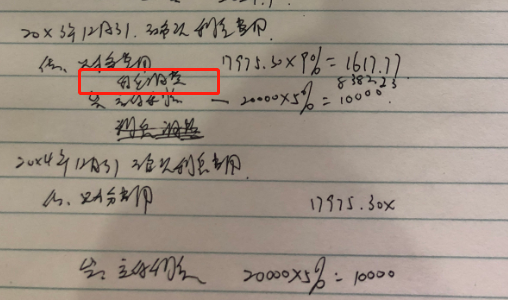 20×3年12月31 确认利息费用
借:财务费用 17975.30×9%=1617.77
利息调整 8382.23
贷:应付利息 — 20000×5%=10000
利息调整
20×4年12月31 确认利息费用
借:财务费用 17975.30×
贷:应付利息 20000×5%=10000